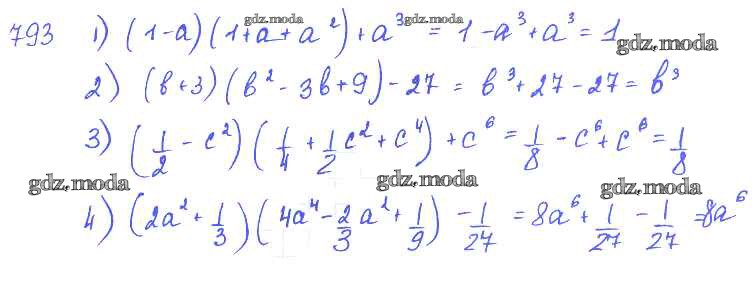 gdz.moda gdz.moda
793 1) (1-a)(1+a+a²)+a³ = 1-a³+a³ = 1
gdz.moda
2) (b+3)(b²-3b+9)-27 = b³+27-27 = b³
3) (1/2 - c²)(1/4 + 1/2c² + c⁴) + c⁶ = 1/8 - c⁶ + c⁶ = 1/8
gdz.moda gdz.moda gdz.moda
4) (2a² + 1/3)(4a⁴ - 2/3a² + 1/9) - 1/27 = 8a⁶ + 1/27 - 1/27 = 8a⁶